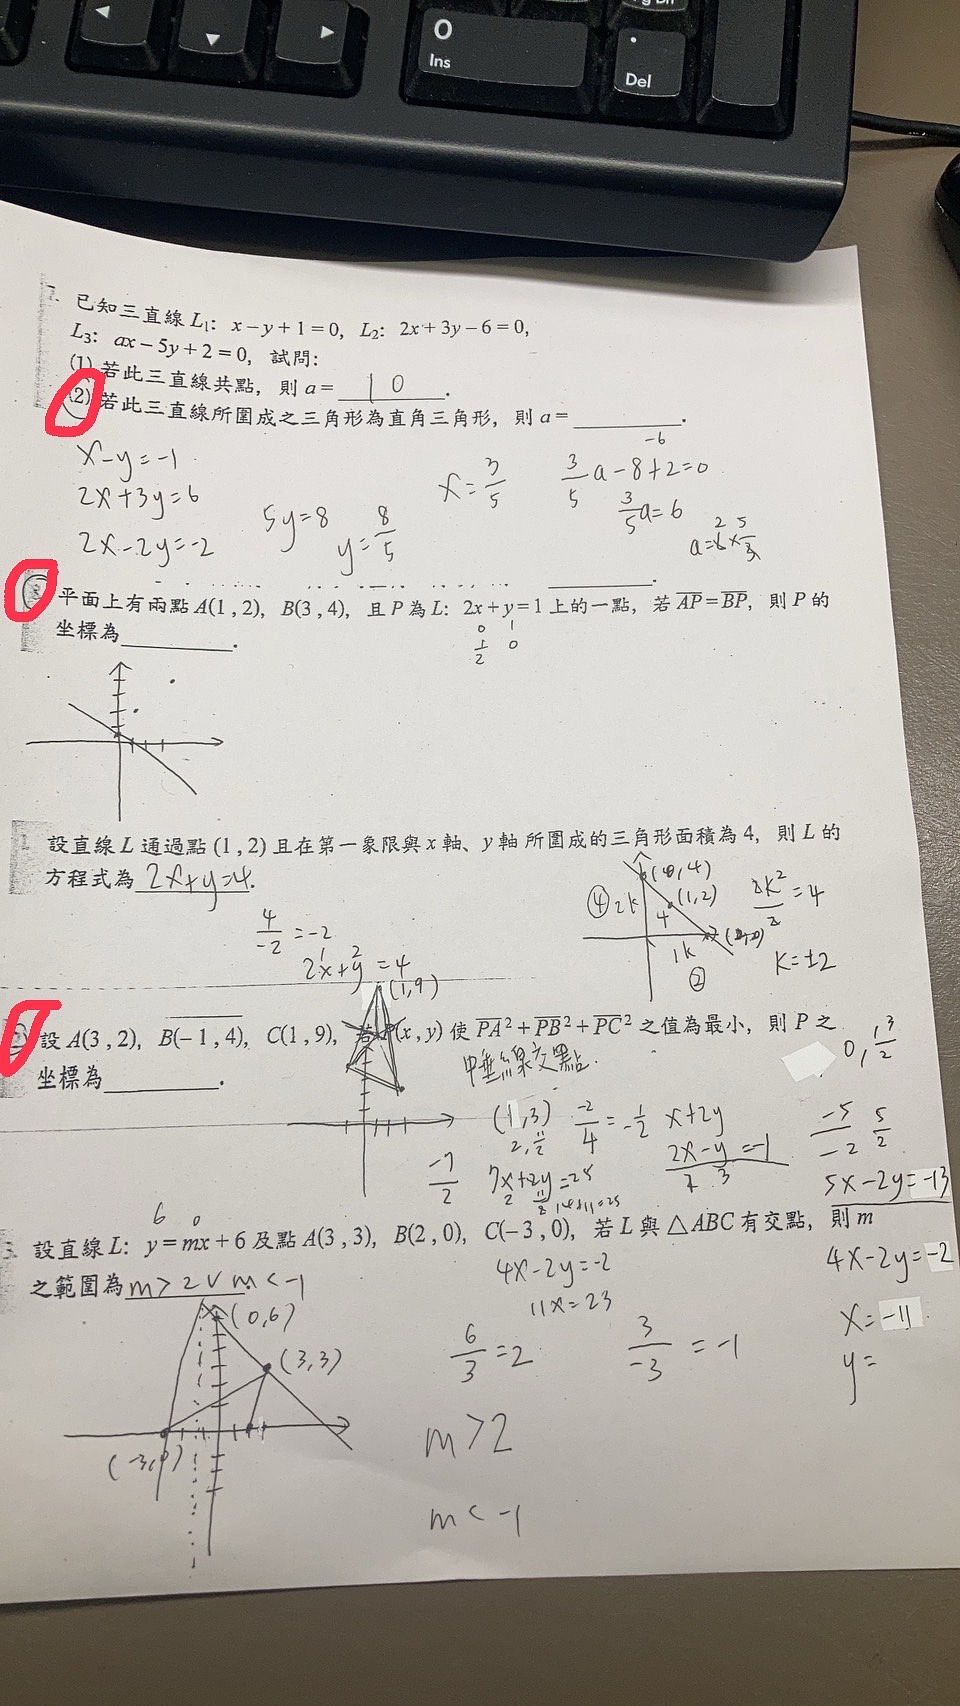 0
Ins
.
Del
已知三直線 L₁: x-y+1=0, L₂: 2x+3y-6=0,
L₃: ax-5y+2=0, 試問:
(1) 若此三直線共點, 則 a= 10 .
(2) 若此三直線所圍成之三角形為直角三角形, 則 a= ________.
x-y=-1
2x+3y=6
2x-2y=-2
5y=8
y=8/5
x=3/5
-6
3/5 a-8+2=0
3/5 a=6
平面上有兩點 A(1,2), B(3,4), 且 P 為 L: 2x+y=1 上的一點, 若 AP=BP, 則 P 的
坐標為________.
0 1
1/2 0
設直線 L 通過點 (1,2) 且在第一象限與 x 軸、y 軸所圍成的三角形面積為 4, 則 L 的
方程式為 2x+y=4.
4/-2 =-2
1 2
2x+y=4
(0,4)
(1,2)
④ 2k
4
1k
②
2k²/2=4
k=±2
(1,9)
設 A(3,2), B(-1,4), C(1,9), 若 P(x,y) 使 PA²+PB²+PC² 之值為最小, 則 P 之
坐標為________.
中垂線交點.
0, 13/2
(1,3)
2, 11/2
-2/4=-1/2
x+2y
2x-y=-1
1 3
-5/-2 5/2
-7/2
7x+2y=25
2 11/2 14+11=25
5x-2y=-13
4x-2y=-2
x=-11
y=
6 0
設直線 L: y=mx+6 及點 A(3,3), B(2,0), C(-3,0), 若 L 與 △ABC 有交點, 則 m
之範圍為 m>2 ∨ m<-1
4x-2y=-2
11x=23
(0,6)
(3,3)
(-3,0)
6/3=2
3/-3 = -1
m>2
m<-1